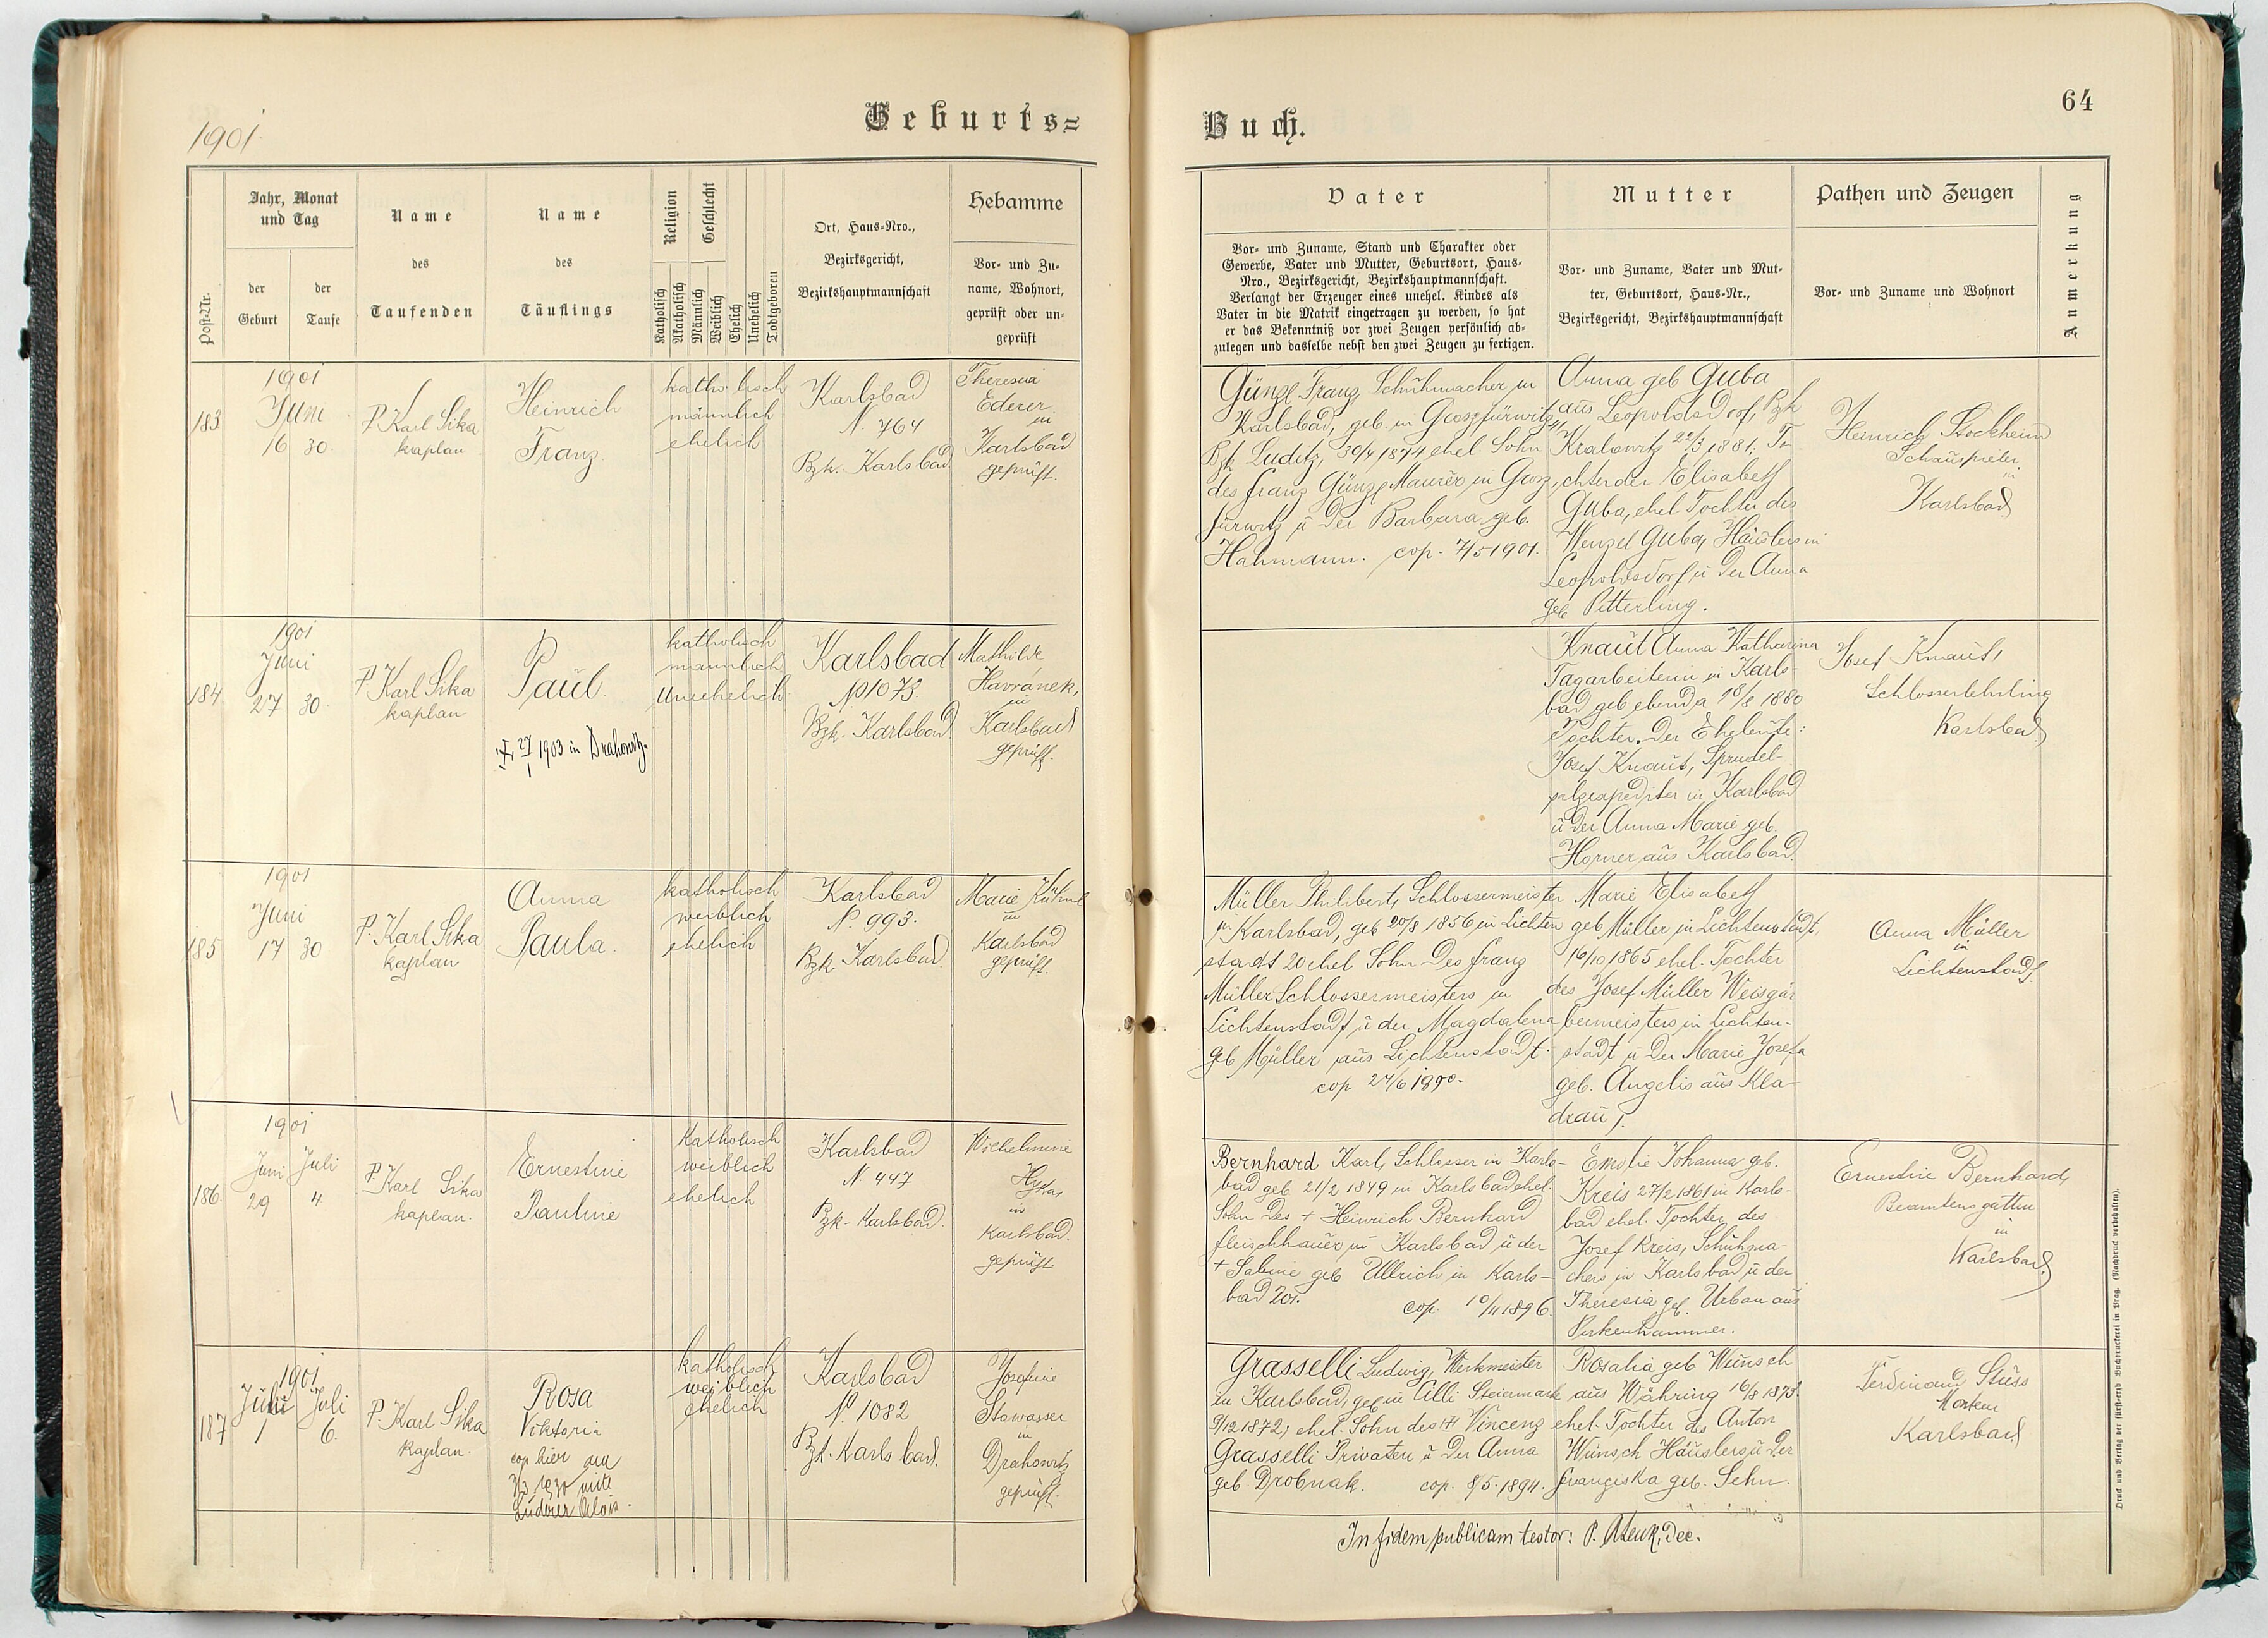 1901
Geburts=
Post-Nr.
Jahr, Monat
und Tag
der
Geburt
der
Taufe
Name
des
Taufenden
Name
des
Täuflings
Religion
Katholisch
Akatholisch
Geschlecht
Männlich
Weiblich
Ehelich
Unehelich
Todtgeboren
Ort, Haus-Nro.,
Bezirksgericht,
Bezirkshauptmannschaft
Hebamme
Vor- und Zu-
name, Wohnort,
geprüft oder un-
geprüft
183
1901
Juni
16 30
P. Karl Sika
kaplan
Heinrich
Franz.
katholisch
männlich
ehelich
Karlsbad
N. 764
Bzk. Karlsbad
Theresia
Ederer
in
Karlsbad
geprüft.
184
1901
Juni
27 30
P. Karl Sika
kaplan
Paul.
27/1 1903 in Drahowitz.
katholisch
männlich
Unehelich
Karlsbad
N. 1073.
Bzk. Karlsbad
Mathilde
Havránek,
in
Karlsbad
geprüft.
185
1901
Juni
17 30
P. Karl Sika
kaplan
Anna
Paula.
katholisch
weiblich
ehelich
Karlsbad
N. 993.
Bzk Karlsbad.
Marie Kühnl
in
Karlsbad
geprüft.
186.
1901
Juni Juli
29 4
P. Karl Sika
kaplan.
Ernestine
Pauline
Katholisch
weiblich
ehelich
Karlsbad
N. 447
Bzk- Karlsbad.
Wilhelmine
in
Karlsbad.
geprüft
187
1901
Juli Juli
1 6.
P. Karl Sika
kaplan.
Rosa
Viktoria
cop hier am
1930 mit
Alois.
katholisch
weiblich
ehelich
Karlsbad
N. 1082
Bzk. Karlsbad.
Josefine
Stowasser
in
Drahowitz
geprüft.
64
Buch.
Vater
Vor- und Zuname, Stand und Charakter oder
Gewerbe, Vater und Mutter, Geburtsort, Haus-
Nro., Bezirksgericht, Bezirkshauptmannschaft.
Verlangt der Erzeuger eines unehel. Kindes als
Vater in die Matrik eingetragen zu werden, so hat
er das Bekenntniß vor zwei Zeugen persönlich ab-
zulegen und dasselbe nebst den zwei Zeugen zu fertigen.
Mutter
Vor- und Zuname, Vater und Mut-
ter, Geburtsort, Haus-Nr.,
Bezirksgericht, Bezirkshauptmannschaft
Pathen und Zeugen
Vor- und Zuname und Wohnort
Anmerkung
Günzl Franz, Schuhmacher in
Karlsbad, geb. in Groszfürwitz,
Bzk Luditz, 30/4 1874 ehel Sohn
des Franz Günzl Maurer in Grosz,
fürwitz u der Barbara geb.
Hahmann. cop. 7/5 1901.
Anna geb Guba
aus Leopoldsdorf, Bzk
Kralowitz 22/3 1881; To-
chter der Elisabeth
Guba, ehel Tochter des
Wenzel Guba, Häuslers in
Leopoldsdorf u der Anna
geb Pitterling.
Heinrich Stockheim
Schauspieler
in
Karlsbad
Knaut Anna Katharina
Tagarbeiterin in Karls-
bad geb ebenda 18/8 1880
Tochter der Eheleute:
Josef Knaut, Sprudel-
salzexpediter in Karlsbad
u der Anna Marie geb.
aus Karlsbad.
Josef Knaut,
Schlosserlehrling
Karlsbad
Müller Philibert, Schlossermeister
in Karlsbad, geb 20/8 1856 in Lichten
stadt 20 ehel Sohn des Franz
Müller Schlossermeisters in
Lichtenstadt u der Magdalena
geb Müller aus Lichtenstadt.
cop 24/6 1890.
Marie Elisabeth
geb Müller in Lichtenstadt,
16/10 1865 ehel. Tochter
des Josef Müller Weisgär
bermeisters in Lichten-
stadt u der Marie Josefa
geb. Angelis aus Kla-
drau.
Anna Müller
in
Lichtenstadt.
Bernhard Karl, Schlosser in Karls-
bad geb 21/2 1849 in Karlsbad ehel.
Sohn des + Heinrich Bernhard
fleischhauer in Karlsbad u der
+ Sabine geb Ullrich in Karls-
bad 201.
cop. 10/11 1896.
Emilie Johanna geb.
Kreis 27/2 1861 in Karls-
bad ehel. Tochter des
Josef Kreis, Schuhma-
chers in Karlsbad u der
Theresia geb. Urban aus
Pirkenhammer.
Ernestine Bernhard,
Beamtensgattin
in
Karlsbad
Grasselli Ludwig, Werkmeister
in Karlsbad, geb in Cilli Steiermark
9/12 1872; ehel. Sohn des Vincenz
Grasselli Privaten u der Anna
geb Drobnak. cop. 8/5. 1894.
Rosalia geb Wunsch
aus Währing 16/8 1873.
ehel. Tochter des Anton
Wunsch Häuslers u der
Franziska geb. Sehn.
Ferdinand Stüss
Karlsbad
In fidem publicam testor: P. Dec.
Druck und Verlag der fürst-erzb Buchdruckerei in Prag. (Nachdruck vorbehalten).